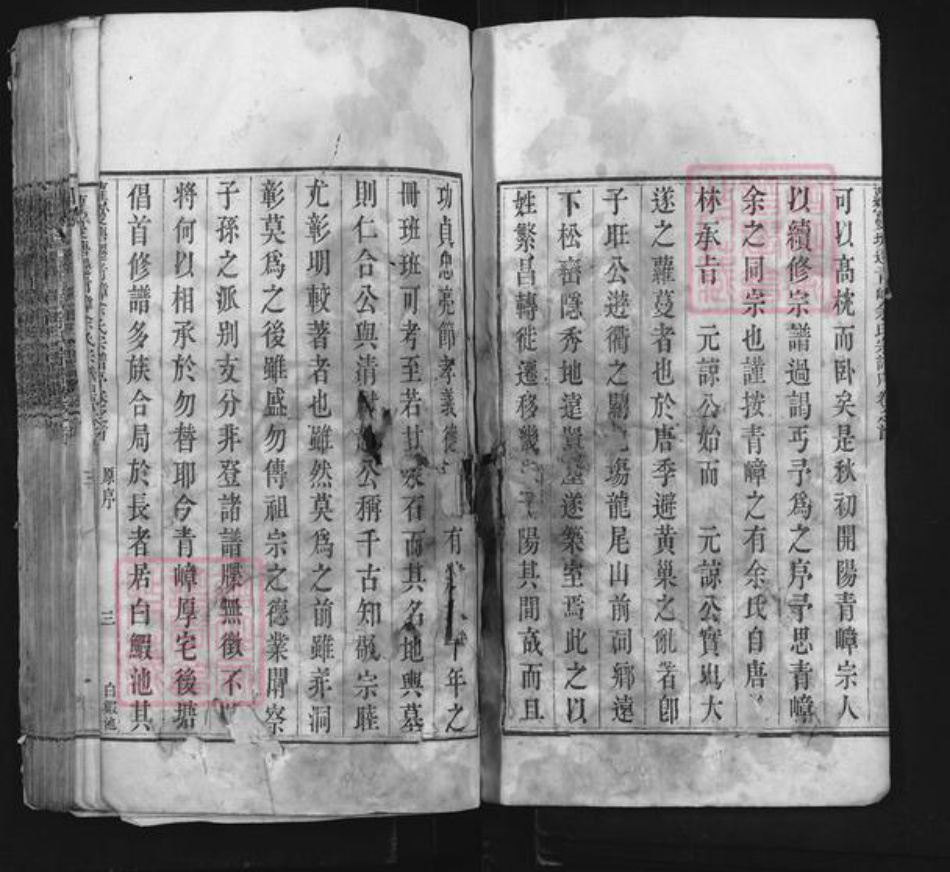 可以高枕而卧矣是秋初開陽青嶂宗人
以續修宗譜過謁丐予爲之序予思青嶂
余之同宗也謹按青嶂之有余氏自唐
林承旨 元諒公始而 元諒公實 大
遂之蘿蔓者也於唐季避黃巢之亂者卽
子旺公遊衢之 龍尾山前洞鄉遠
下松 隱秀地遠 遂築室焉此之以
姓繁昌轉徙遷移 陽其間 而且
功貞忠亮節孝義 有 年之
冊班班可考至若 石而其名地與墓
則仁合公與清 公稱千古知敬宗睦
尤彰明較著者也雖然莫爲之前雖 洞
彰莫爲之後雖盛勿傳祖宗之德業 察
子孫之派别支分非登諸譜牒無徵不
將何以相承於勿替耶今青嶂厚宅後塘
倡首修譜多族合局於長者居白鰕池其
原序
三
白鰕池